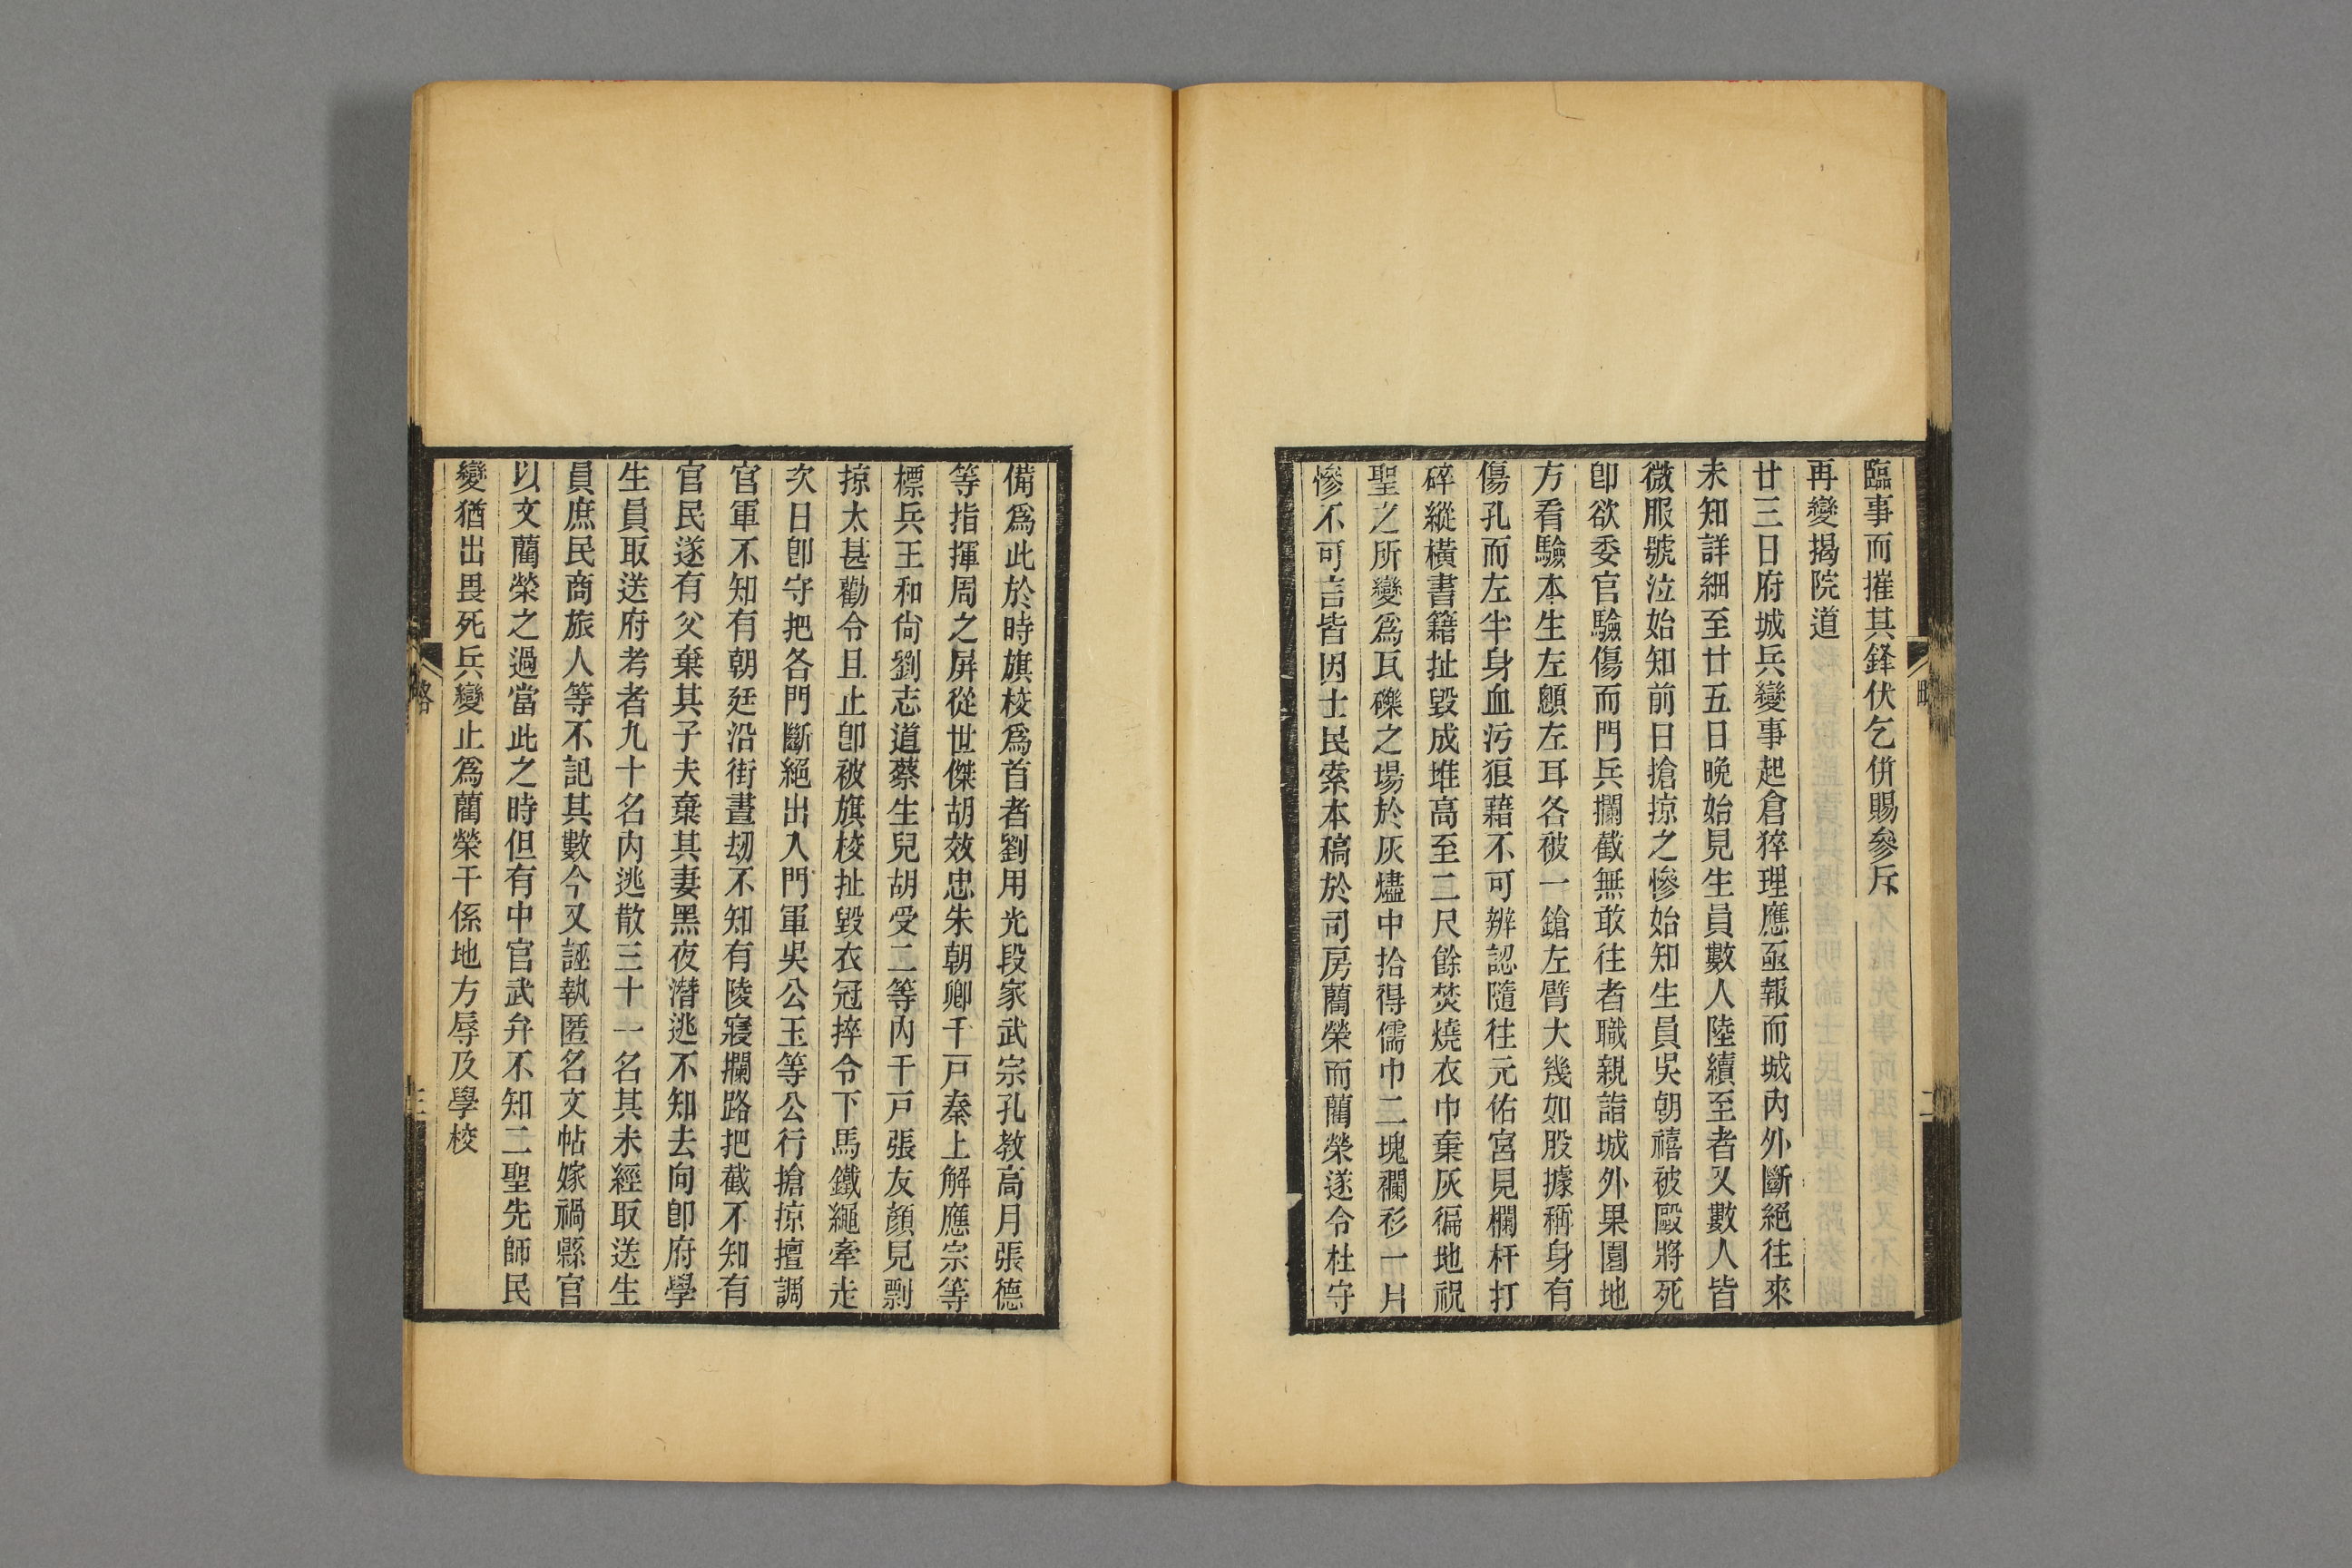 臨事而摧其鋒伏乞併賜參斥
再變揭院道
廿三日府城兵變事起倉猝理應亟報而城內外斷絕往來
未知詳細至廿五日晚始見生員數人陸續至者又數人皆
微服號泣始知前日搶掠之慘始知生員吳朝禧被毆將死
卽欲委官驗傷而門兵攔截無敢往者職親詣城外果園地
方看驗本生左顋左耳各被一鎗左臂大幾如股據稱身有
傷孔而左半身血污狼藉不可辨認隨往元佑宮見欄杆打
碎縱橫書籍扯毀成堆高至二尺餘焚燒衣巾棄灰徧地祝
聖之所變爲瓦礫之場於灰燼中拾得儒巾二塊襴衫一片
慘不可言皆因士民索本稿於司房藺榮而藺榮遂令杜守
備爲此於時旗校爲首者劉用光段家武宗孔教高月張德
等指揮周之屏從世傑胡效忠朱朝卿千戸秦上解應宗等
標兵王和尙劉志道蔡生兒胡受二等內千戸張友顏見剽
掠太甚勸令且止卽被旗校扯毀衣冠捽令下馬鐵繩牽走
次日卽守把各門斷絕出入門軍吳公玉等公行搶掠擅調
官軍不知有朝廷沿街晝刼不知有陵寢攔路把截不知有
官民遂有父棄其子夫棄其妻黑夜潛逃不知去向卽府學
生員取送府考者九十名內逃散三十一名其未經取送生
員庶民商旅人等不記其數今又誣執匿名文帖嫁禍縣官
以文藺榮之過當此之時但有中官武弁不知二聖先師民
變猶出畏死兵變止爲藺榮干係地方辱及學校
略
三
二